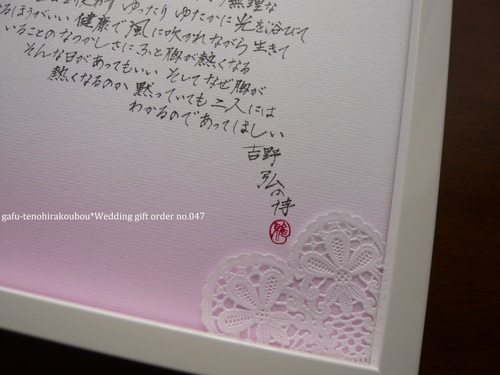 無理な
を使わず ゆったり ゆたかに 光を浴びて
るほうがいい 健康で 風に吹かれながら 生きて
いることのなつかしさに ふと胸が熱くなる
そんな日があってもいい そして なぜ胸が
熱くなるのか 黙っていても 二人には
わかるのであってほしい
吉野
弘の
詩
gafu-tenohirakoubou*Wedding gift order no.047